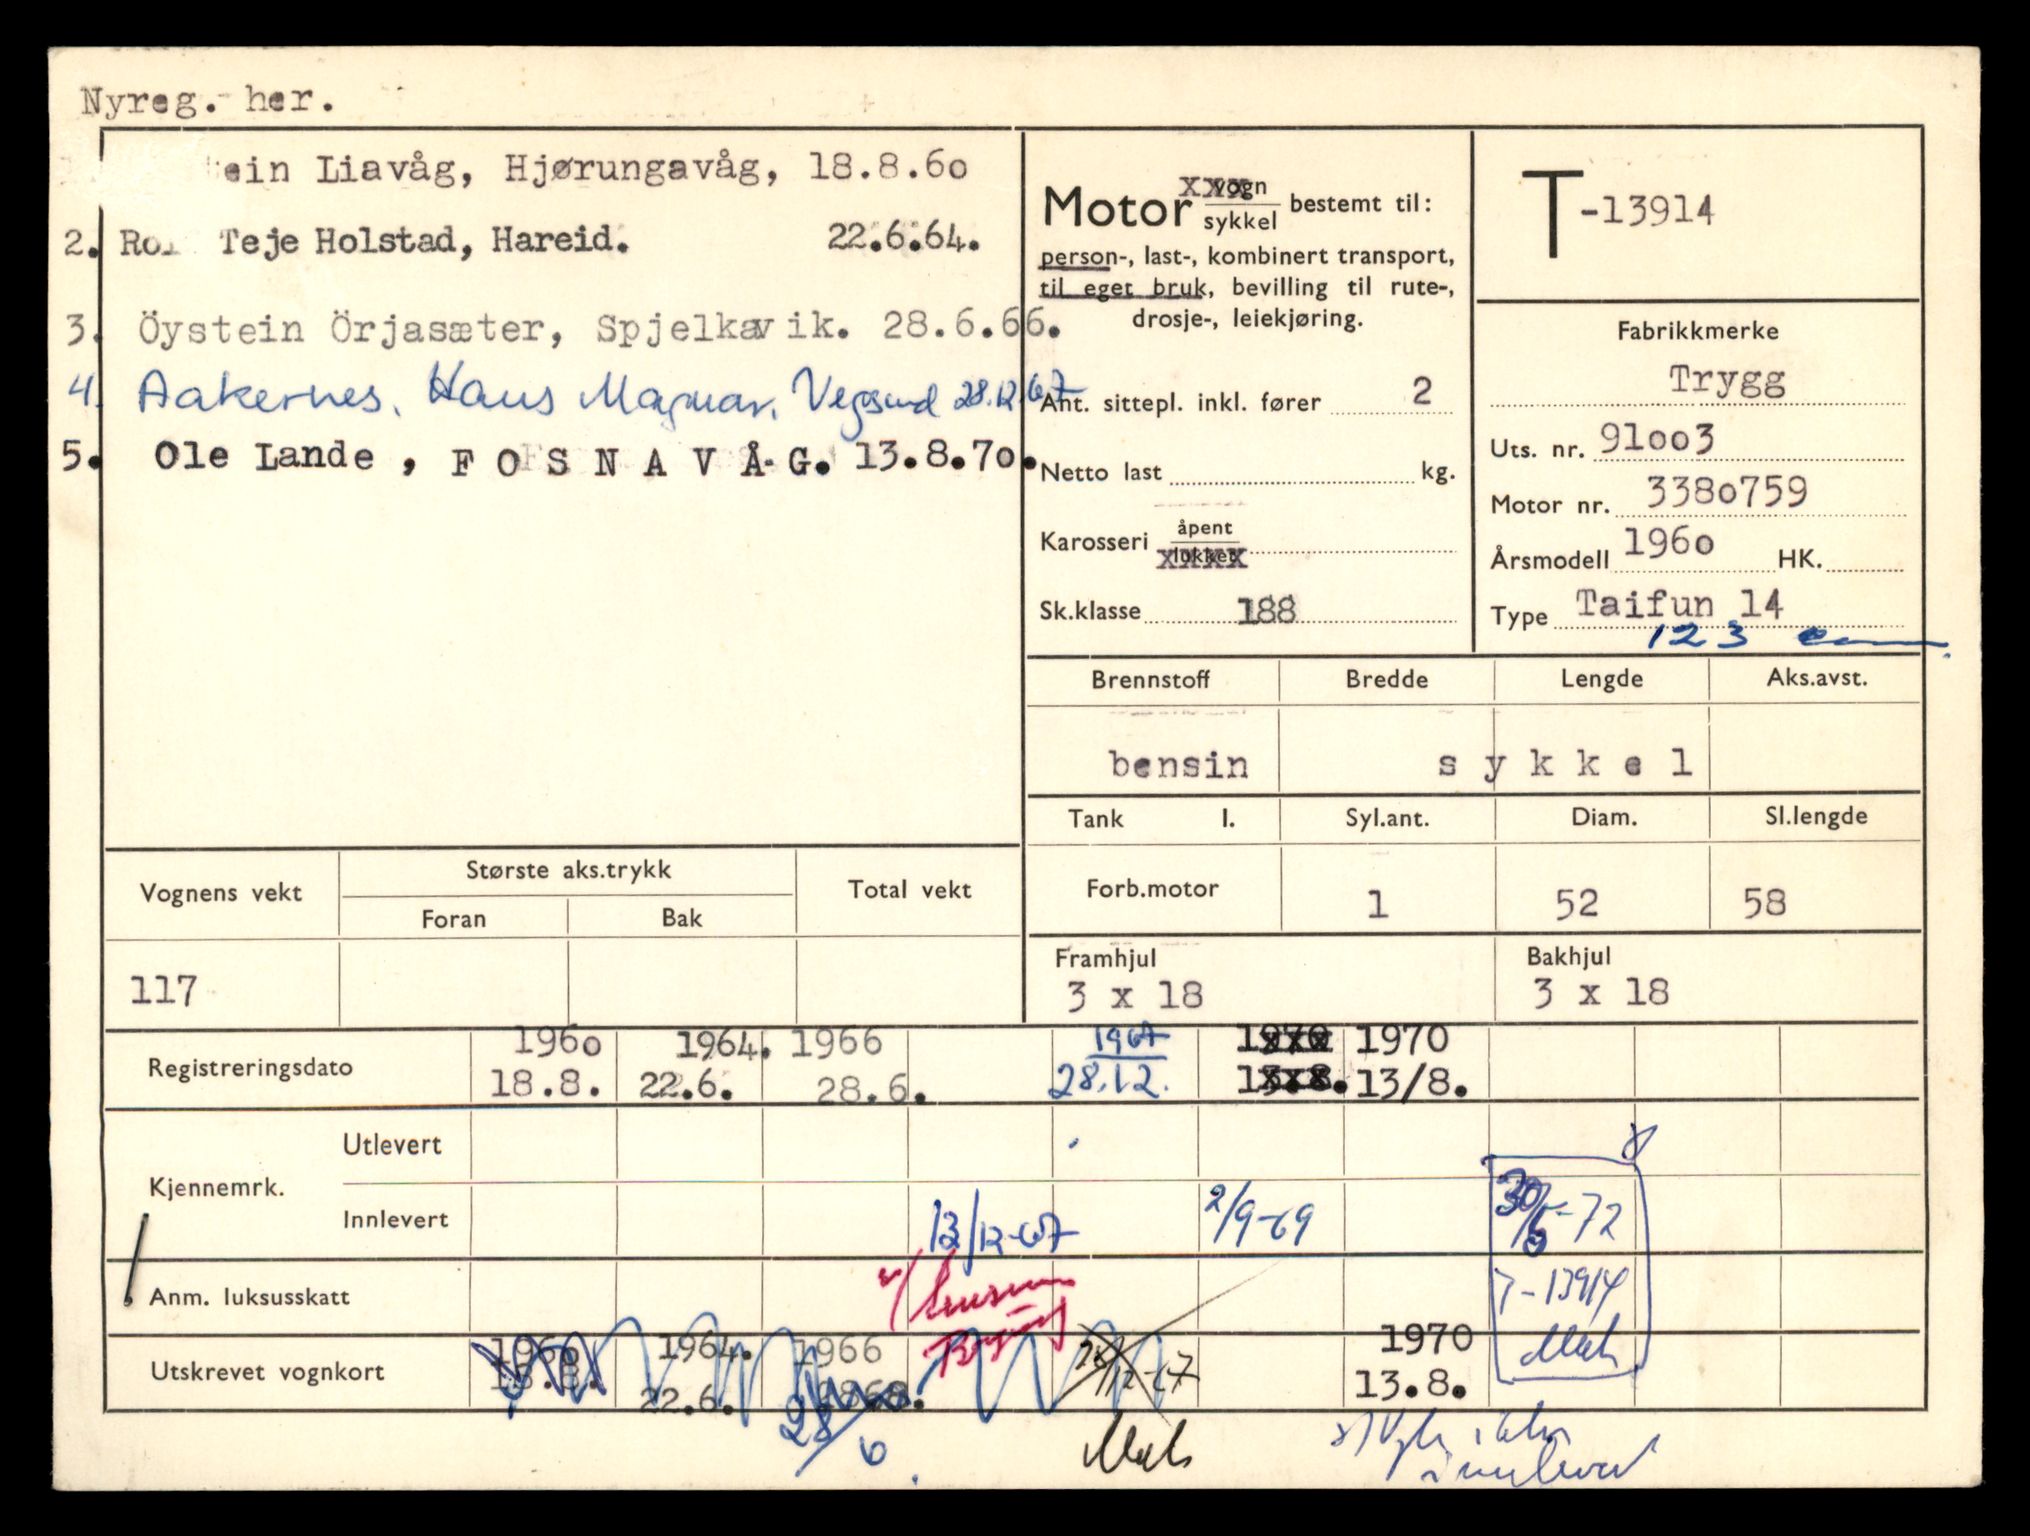 Nyreg. her.
ein Liavåg, Hjørungavåg, 18.8.60
2. Teje Holstad, Hareid. 22.6.64.
3. Öystein Örjasæter, Spjelkavik. 28.6.66.
4. Aakernes, Hans Magnar, Vegsund 28.12.67
5. Ole Lande, FOSNAVÅG. 13.8.70.
Motor vogn/sykkel bestemt til:
person-, last-, kombinert transport,
til eget bruk, bevilling til rute-,
drosje-, leiekjøring.
Ant. sittepl. inkl. fører 2
Netto last kg.
Karosseri åpent/lukket
Sk.klasse 188
T-13914
Fabrikkmerke
Trygg
Uts. nr. 91003
Motor nr. 3380759
Årsmodell 1960 HK.
Type Taifun 14
123
Brennstoff Bredde Lengde Aks.avst.
bensin s y k k e l
Tank l. Syl.ant. Diam. Sl.lengde
Forb.motor 1 52 58
Framhjul Bakhjul
3 x 18 3 x 18
Vognens vekt Største aks.trykk Total vekt
Foran Bak
117
Registreringsdato 1960 1964. 1966 1967 1970 1970
18.8. 22.6. 28.6. 28.12. 13.8. 13/8.
Kjennemrk. Utlevert
Innlevert 13/12-67 2/9-69 30/5-72
Anm. luksusskatt T-13914
Utskrevet vognkort 1960 1964. 1966 1970
18.8. 22.6. 28/12-67 13.8.
28/6